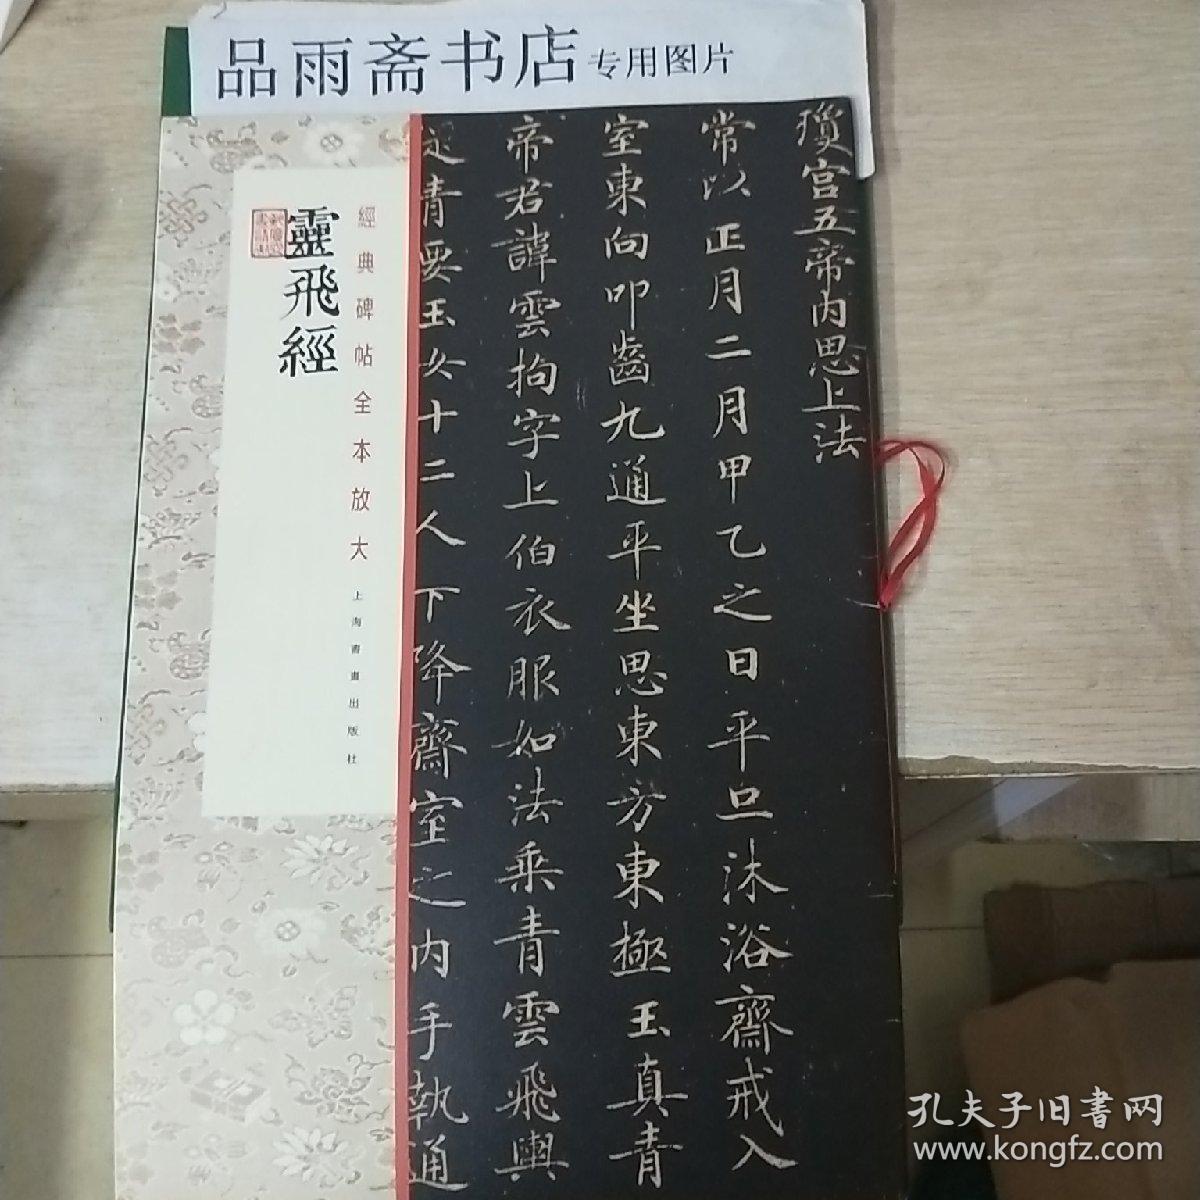 品雨斋书店专用图片
瓊宫五帝内思上法
常以正月二月甲乙之日平旦沐浴齋戒入
室東向叩齒九通平坐思東方東極玉真青
帝君諱雲拘字上伯衣服如法乘青雲飛輿
從青要玉女十二人下降齋室之内手執通
經典碑帖全本放大
上海書畫出版社
靈飛經
孔夫子旧書网
www.kongfz.com